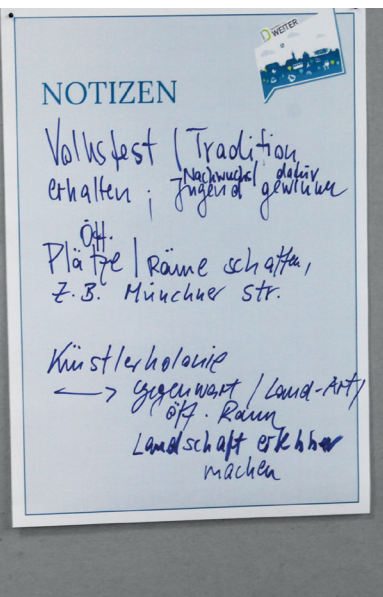 D WEITER
NOTIZEN
Volksfest / Tradition
Nachwuchs / dafür
erhalten ; Jugend gewinnen
Öff.
Plätze / Räume schaffen,
z.B. Münchner Str.
Künstlerkolonie
<—> Gegenwart / Land-Art /
öff. Raum
Landschaft erlebbar
machen